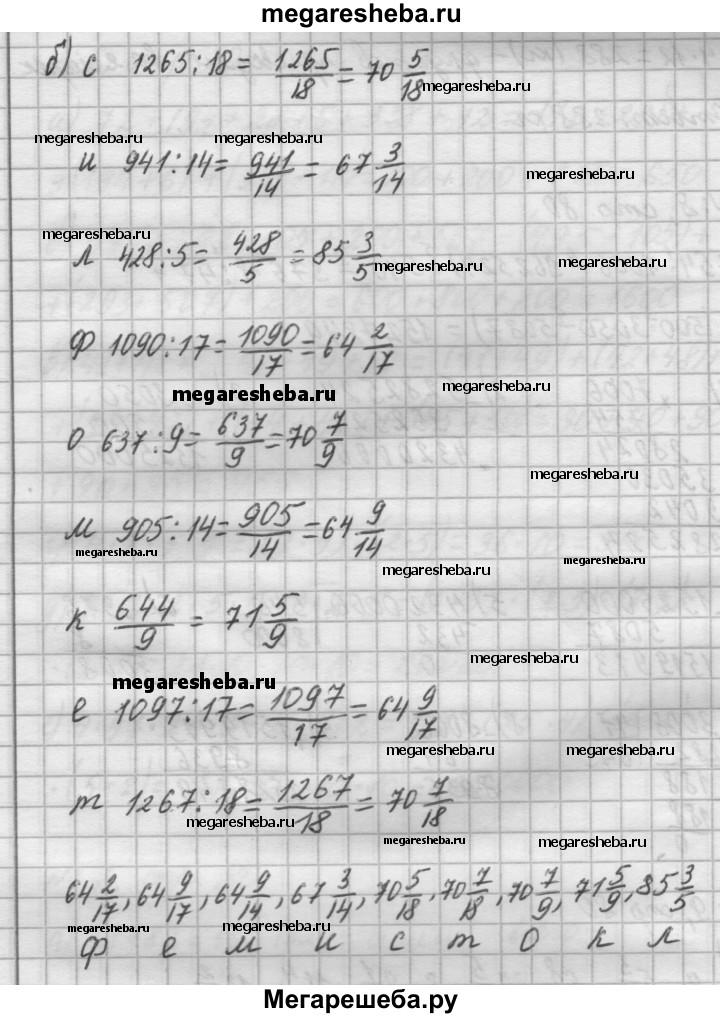 megaresheba.ru
б) с 1265:18 = 1265/18 = 70 5/18
megaresheba.ru
megaresheba.ru megaresheba.ru
и 941:14 = 941/14 = 67 3/14
megaresheba.ru
megaresheba.ru
л 428:5 = 428/5 = 85 3/5
megaresheba.ru megaresheba.ru
ф 1090:17 = 1090/17 = 64 2/17
megaresheba.ru megaresheba.ru
о 637:9 = 637/9 = 70 7/9
megaresheba.ru
м 905:14 = 905/14 = 64 9/14
megaresheba.ru megaresheba.ru megaresheba.ru
к 644/9 = 71 5/9
megaresheba.ru
megaresheba.ru
е 1097:17 = 1097/17 = 64 9/17
megaresheba.ru megaresheba.ru
т 1267:18 = 1267/18 = 70 7/18
megaresheba.ru megaresheba.ru megaresheba.ru
64 2/17, 64 9/17, 64 9/14, 67 3/14, 70 5/18, 70 7/18, 70 7/9, 71 5/9, 85 3/5
megaresheba.ru megaresheba.ru
ф е м и с т о к л
Мегарешеба.ру